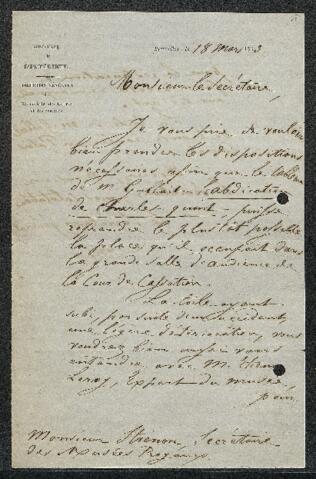 MINISTÈRE
DE
L'INTÉRIEUR
Bruxelles, le 18 Mars 1873
Monsieur le Secrétaire,
Je vous prie de vouloir
bien prendre les dispositions
nécessaires afin que le tableau
de M. Gallait « l'abdication
de Charles quint, puisse
reprendre le plus tôt possible
la place qu'il occupait dans
la grande salle d'audience de
la Cour de Cassation.
La toile ayant
subi, par suite d'un accident,
une légère détérioration, vous
voudrez bien aussi vous
entendre avec M. Etienne
Leroy, Expert du musée,
pour
Monsieur Stienon, Secrétaire
des Musées Royaux.